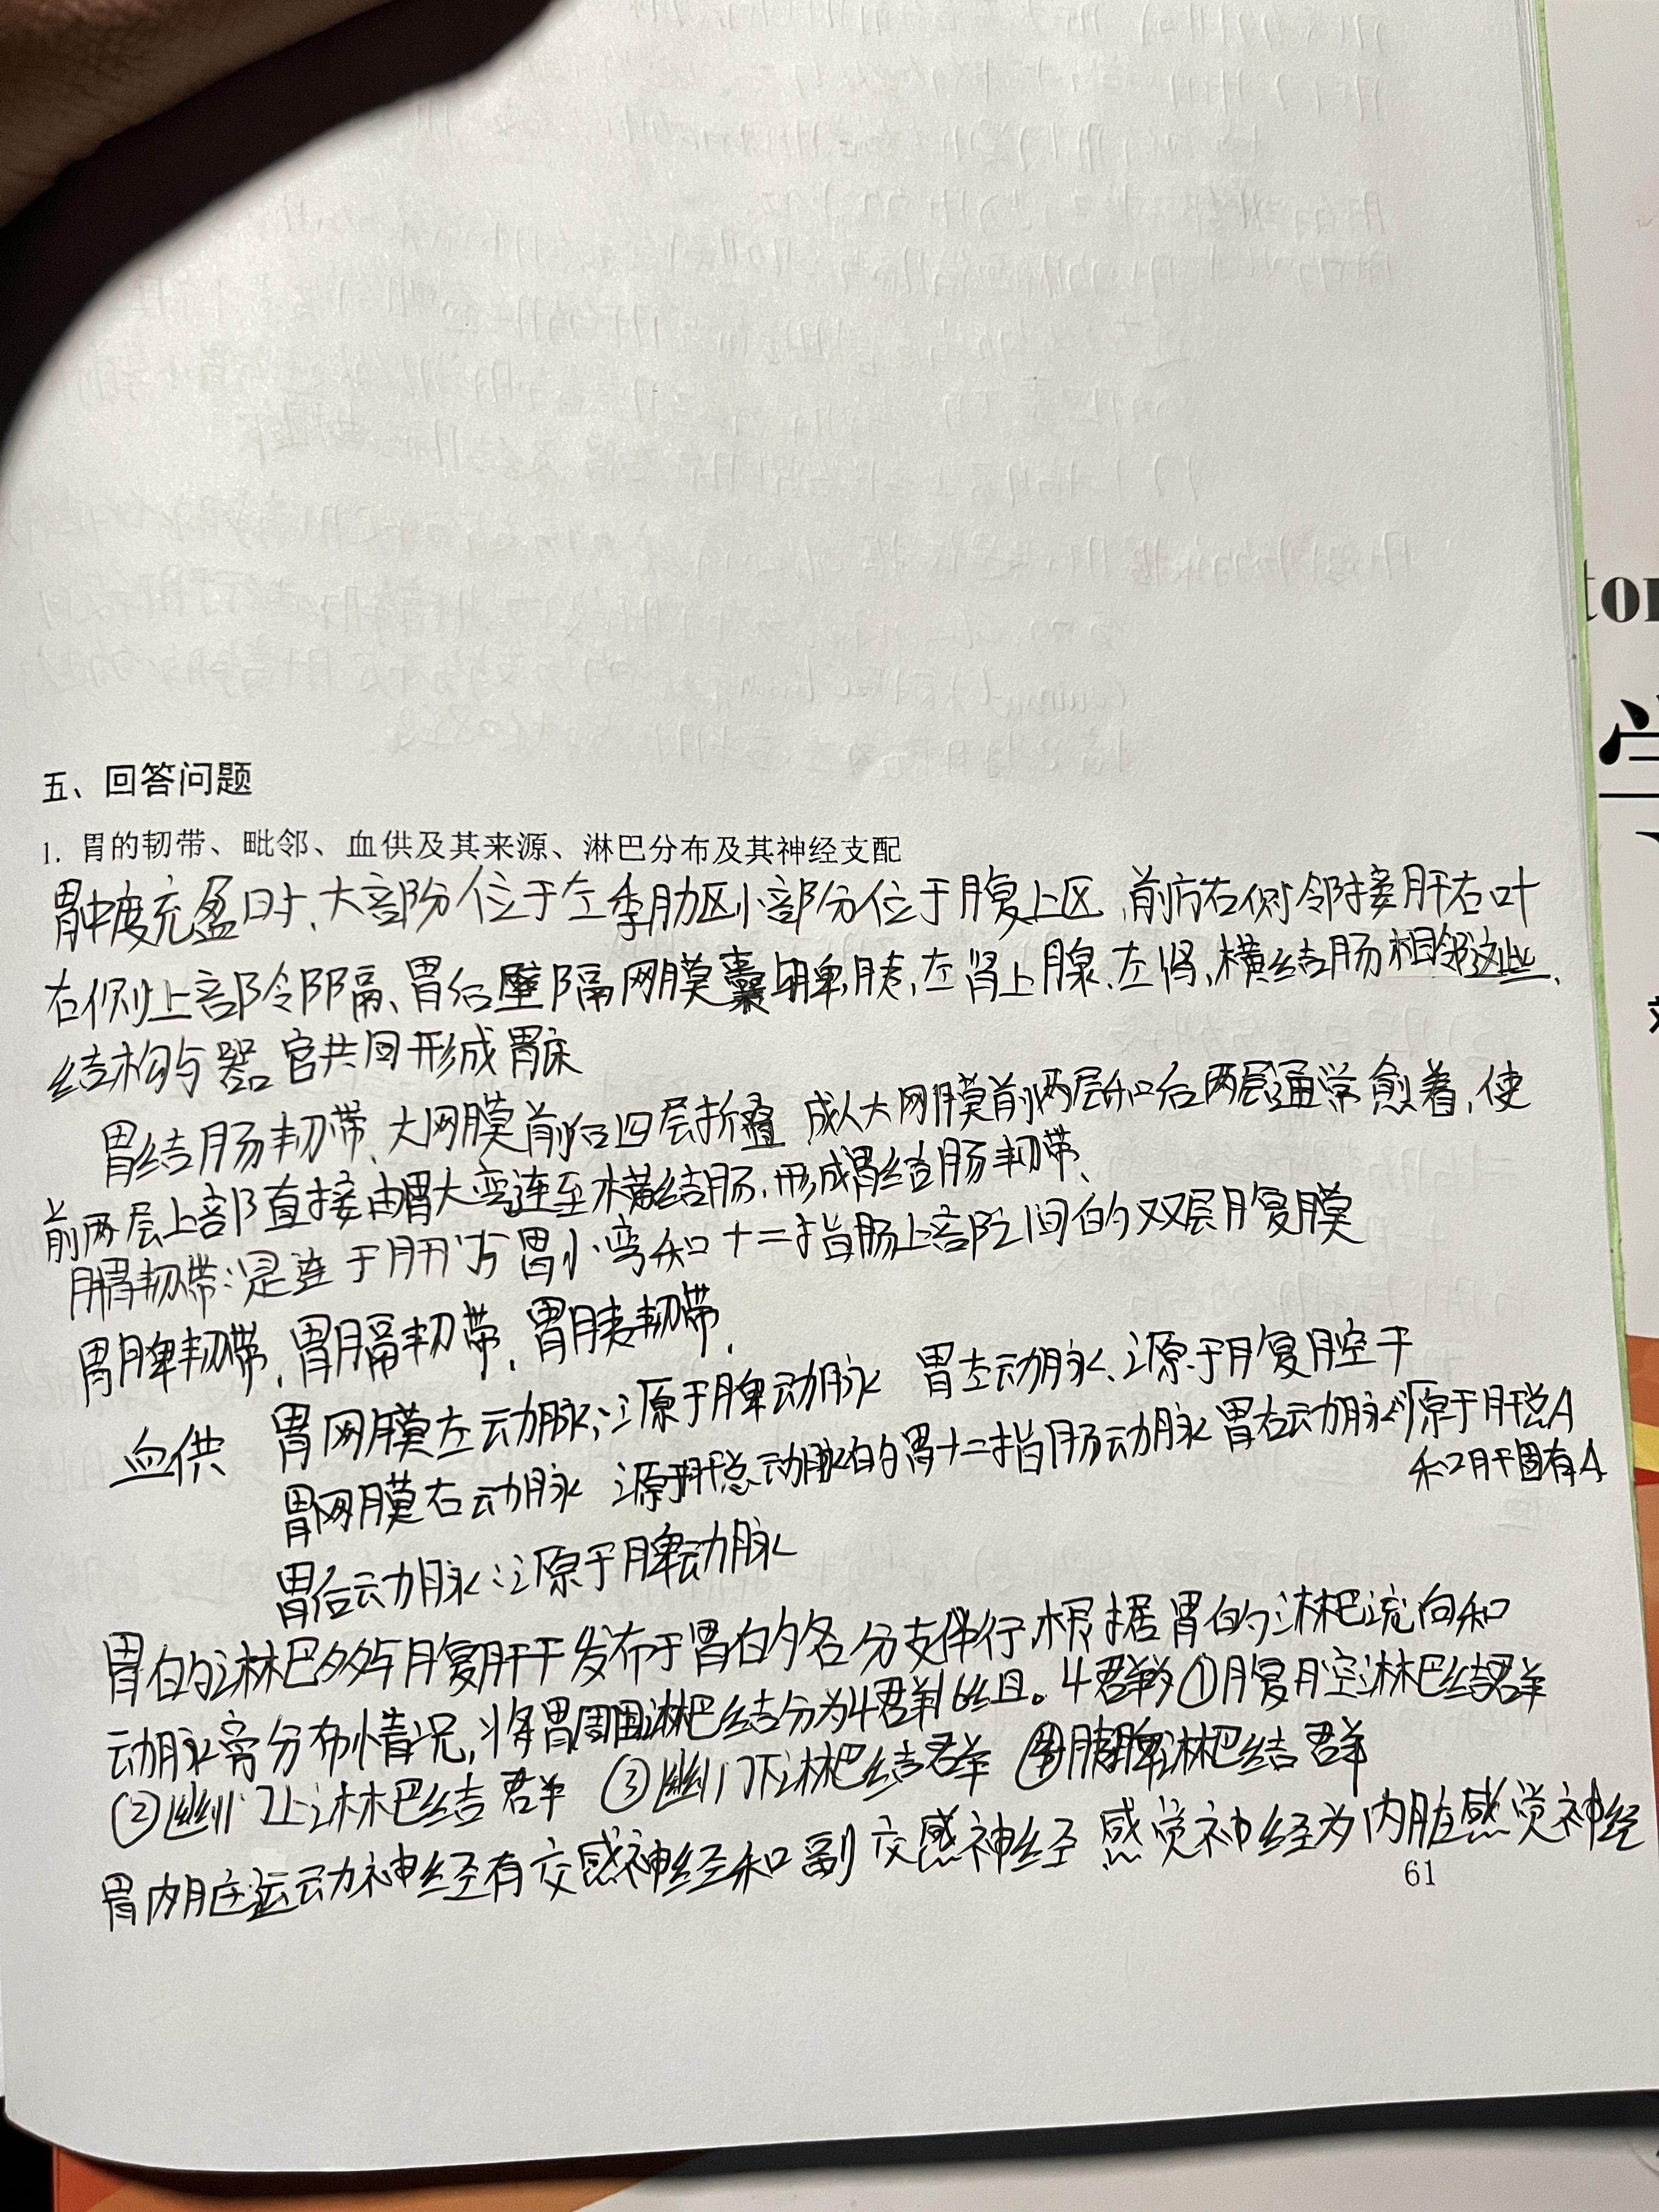 五、回答问题
1. 胃的韧带、毗邻、血供及其来源、淋巴分布及其神经支配
胃中度充盈时、大部分位于左季肋区小部分位于腹上区、前方右侧邻接肝右叶
右侧上部邻隔、胃后壁隔网膜囊与脾,胰,左肾上腺、左肾,横结肠相邻这些、
结构与器官共同形成胃床
胃结肠韧带、大网膜前后四层折叠 成人大网膜前两层和后两层通常愈着,使
前两层上部直接由胃大弯连至横结肠,形成胃结肠韧带、
韧带:是连于肝 胃小弯和十二指肠上部之间的双层腹膜
胃脾韧带,胃膈韧带,胃胰韧带,
血供 胃网膜左动脉;源于脾动脉 胃左动脉、源于腹腔干
胃网膜右动脉 源于肝总动脉的胃十二指肠动脉 胃右动脉 源于肝总A
和肝固有A
胃后动脉:源于脾动脉
胃的淋巴多与腹 干发布于胃的各分支伴行,根据胃的淋巴流向和
动脉旁分布情况,将胃周围淋巴结分为4群16组。4群为①腹腔淋巴结群
②幽门上淋巴结群 ③幽门下淋巴结群 ④胰脾淋巴结群
胃内脏运动神经有交感神经和副交感神经 感觉神经为内脏感觉神经
61
tor
学